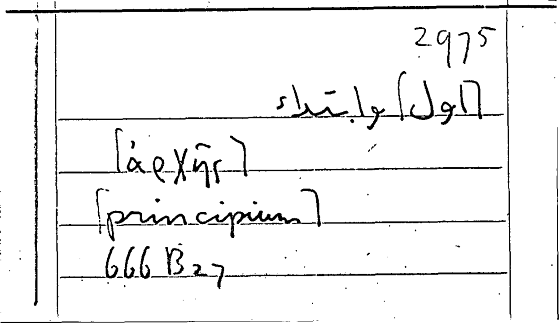 2975
[اول] وابتداء
[ἀρχῆς]
[principium]
666 B27